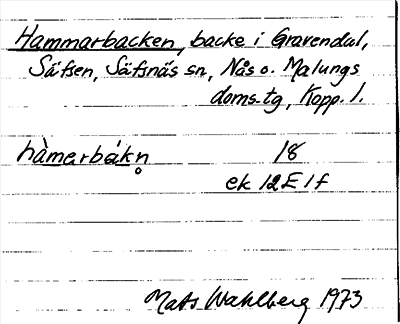 Hammarbacken, backe i Gravendal,
Säfsen, Säfsnäs sn, Nås o. Malungs
doms.tg, Kopp. l.
hàmarbákn̥ 18
ek 12E1f
Mats Wahlberg 1973